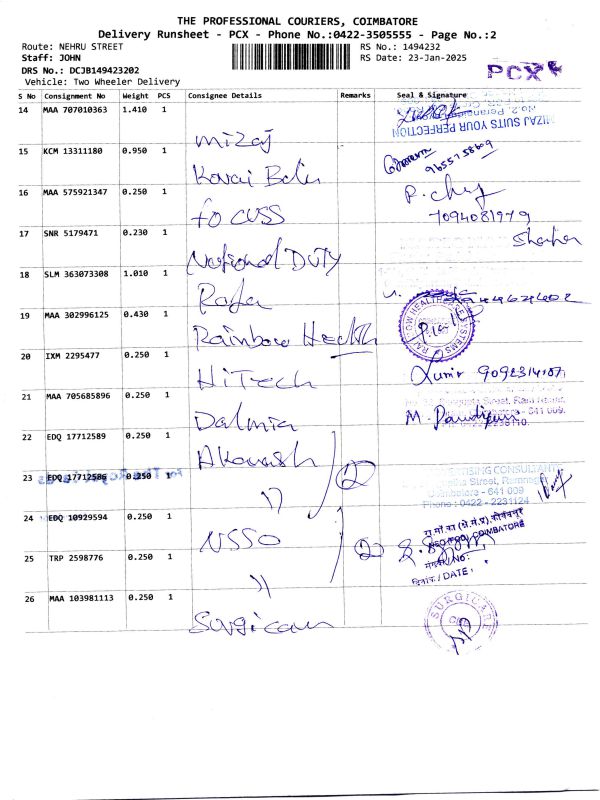 THE PROFESSIONAL COURIERS, COIMBATORE
Delivery Runsheet - PCX - Phone No.:0422-3505555 - Page No.:2
Route: NEHRU STREET
RS No.: 1494232
Staff: JOHN
RS Date: 23-Jan-2025
DRS No.: DCJB149423202
PCX
Vehicle: Two Wheeler Delivery
S No Consignment No Weight PCS Consignee Details Remarks Seal & Signature
14 MAA 707010363 1.410 1 mizaj
MIZAJ SUITS YOUR PERFECTION
15 KCM 13311180 0.950 1 Kovai
16 MAA 575921347 0.250 1 focuss
7094081979
17 SNR 5179471 0.230 1 National DUTY
18 SLM 363073308 1.010 1 Raja
19 MAA 302996125 0.430 1 Rainbow Health
20 IXM 2295477 0.250 1 HiTech
21 MAA 705685896 0.250 1 Dalmia
22 EDQ 17712589 0.250 1
23 EDQ 17712586 0.250 1 "
ADVERTISING CONSULTANT
Coimbatore - 641 009
Phone : 0422 - 2231124
24 EDQ 10929594 0.250 1 NSSO
NSO (FOD) COIMBATORE
25 TRP 2598776 0.250 1 "
दिनांक / DATE :
26 MAA 103981113 0.250 1 Surgicare
SURGICARE